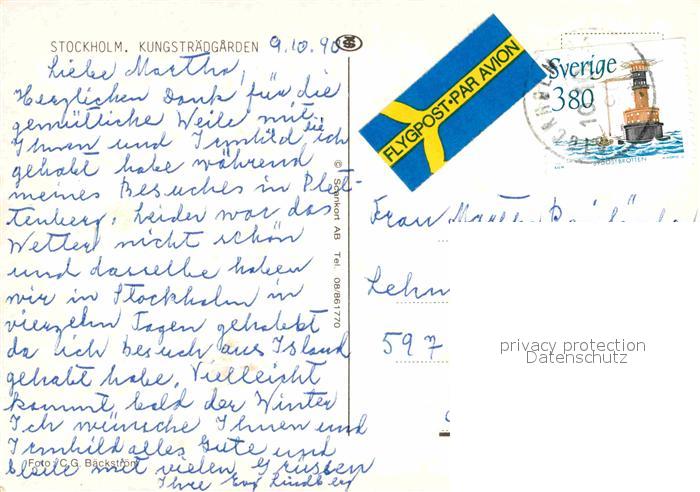 STOCKHOLM. KUNGSTRÄDGÅRDEN 9.10.90
Liebe Martha,
Herzlichen Dank für die
gemütliche Weile mit
Ihnen und Irmhild die ich
gehabt habe während
meines Besuches in Plet-
tenberg. Leider war das
Wetter nicht schön
und dasselbe haben
wir in Stockholm in
vierzehn Tagen gehabt
da ich Besuch aus Island
gehabt habe. Vielleicht
kommt bald der Winter
Ich wünsche Ihnen und
Irmhild alles Gute und
bleibe mit vielen Grüssen
Foto: C.G. Bäckström
Ihre Eva Lindberg
© Svenkort AB Tel. 08/861770
FLYGPOST·PAR AVION
Sverige
380
SYDOSTBROTTEN
Frau
Lehn
597
privacy protection
Datenschutz